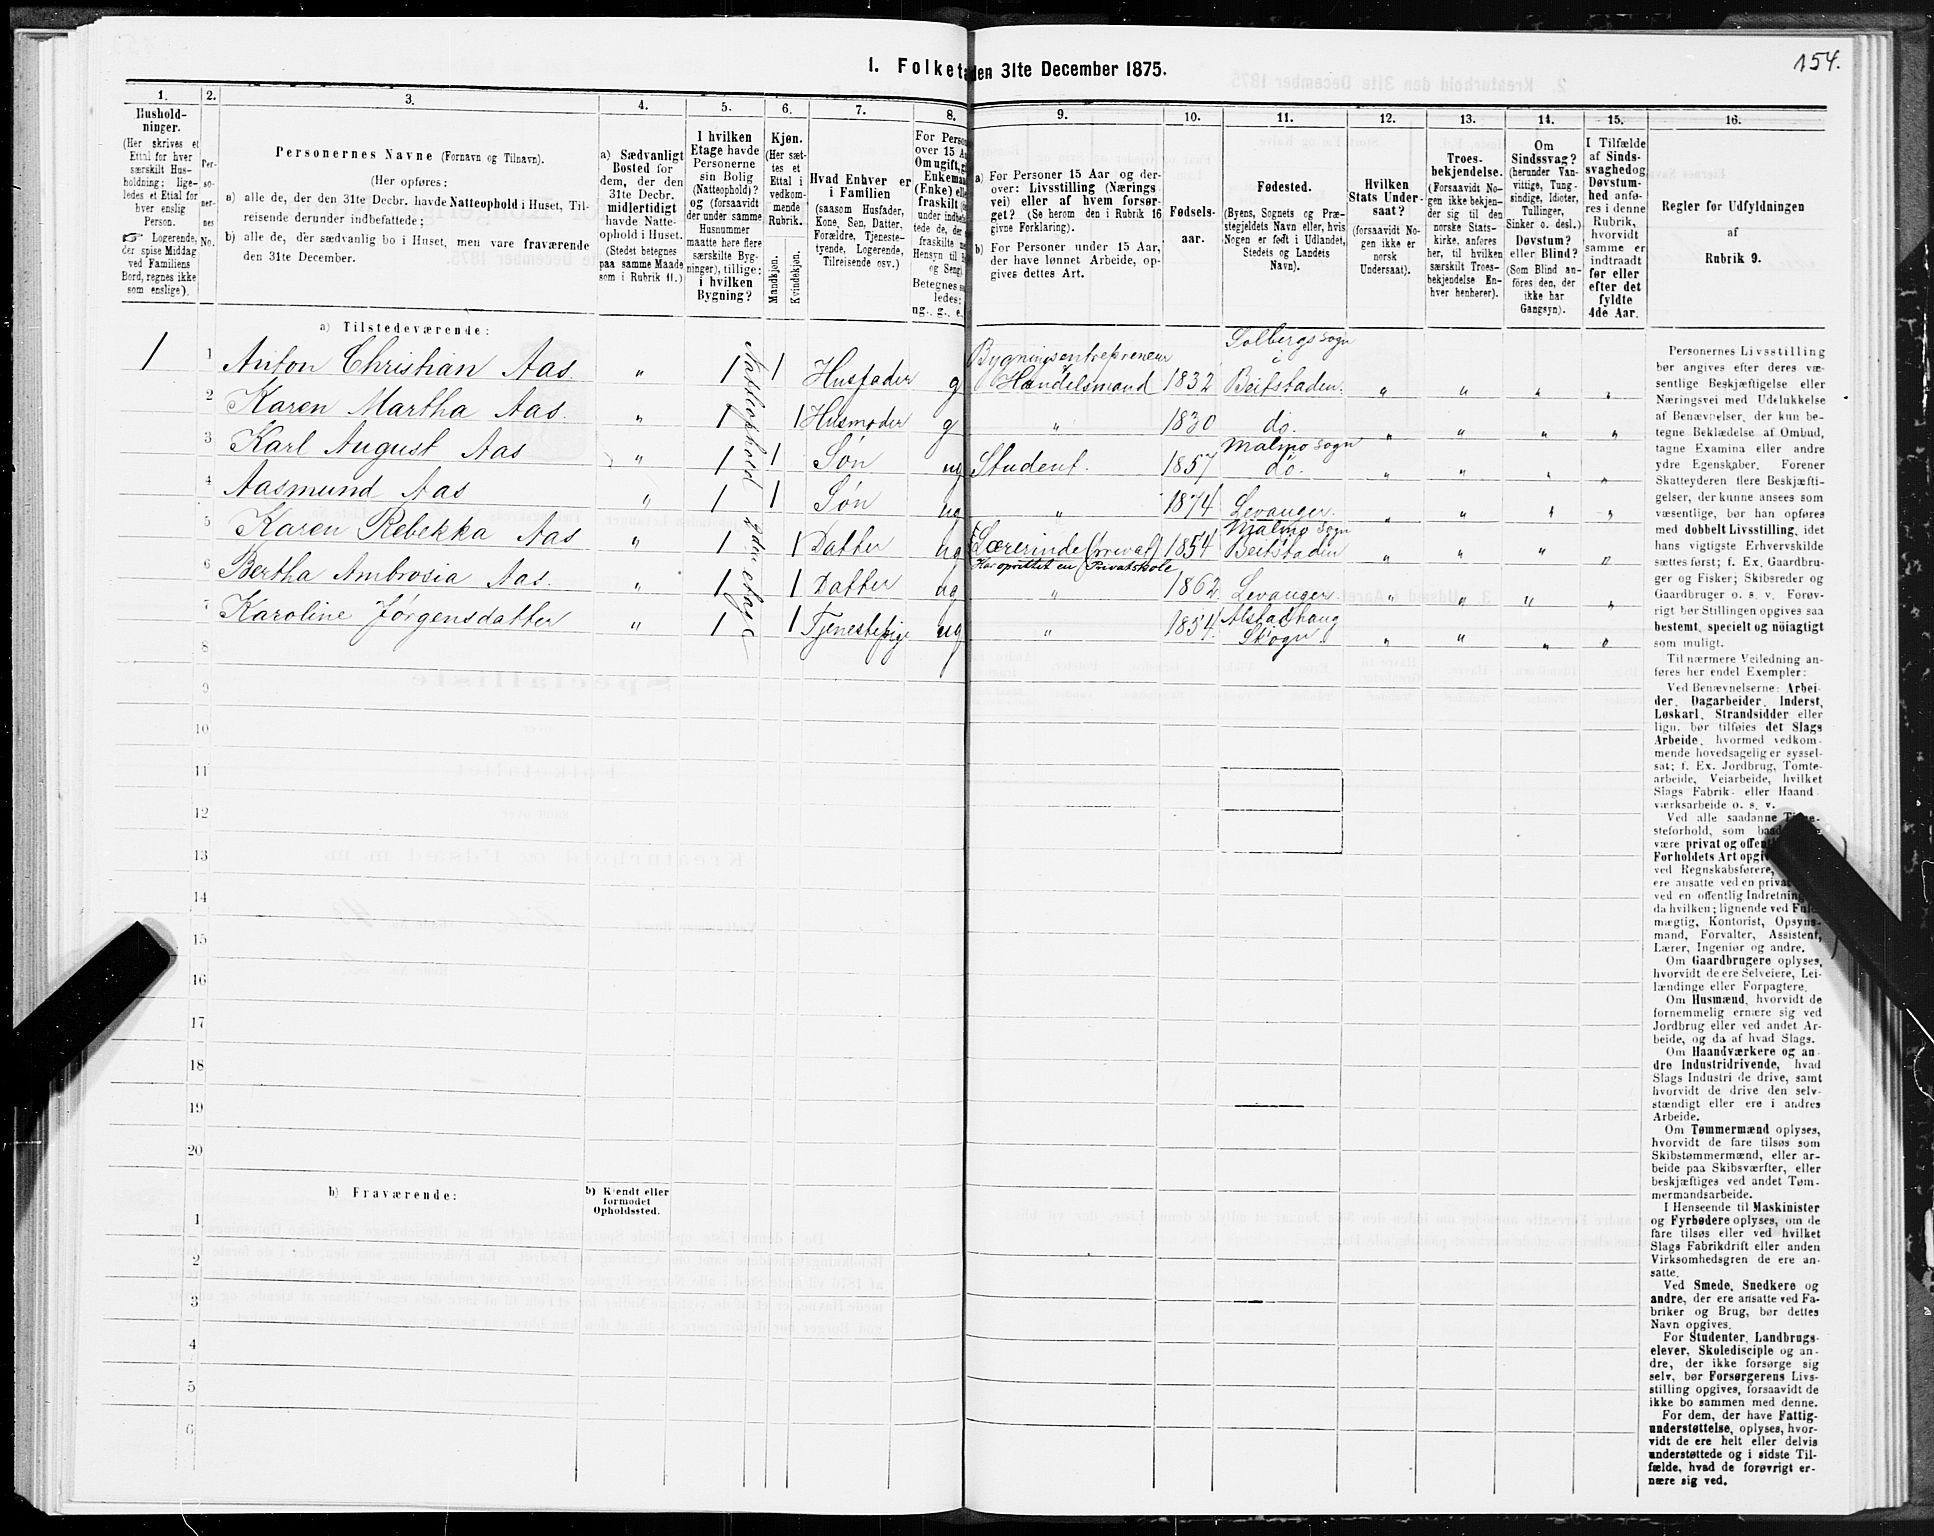 154.
I. Folketa den 31te December 1875.
1. 2. 3. 4. 5. 6. 7. 8. 9. 10. 11. 12. 13. 14. 15. 16.
Hushold-
ninger.
(Her skrives et
Ettal for hver
særskilt Hus-
holdning; lige-
ledes et Ettal for
hver enslig
Person.
☞ Logerende,
der spise Middag
ved Familiens
Bord, regnes ikke
som enslige).
Per-
so-
ner-
nes
No.
Personernes Navne (Fornavn og Tilnavn).
(Her opføres:
a) alle de, der den 31te Decbr. havde Natteophold i Huset, Til-
reisende derunder indbefattede;
b) alle de, der sædvanlig bo i Huset, men vare fraværende
den 31te December.
a) Sædvanligt
Bosted for
dem, der den
31te Decbr.
midlertidigt
havde Natte-
ophold i Huset.
(Stedet betegnes
paa samme Maade
som i Rubrik 11.)
I hvilken
Etage havde
Personerne
sin Bolig
(Natteophold)?
og (forsaavidt
der under samme
Husnummer
maatte høre flere
særskilte Byg-
ninger), tillige:
i hvilken
Bygning?
Kjøn.
(Her sæt-
tes et
Ettal i
vedkom-
mende
Rubrik.
Mandkjøn.
Kvindekjøn.
Hvad Enhver er
i Familien
(saasom Husfader,
Kone, Søn, Datter,
Forældre, Tjeneste-
tyende, Logerende,
Tilreisende osv.)
For Perso
over 15 Aa
Om ugift, gi
Enkeman
(Enke) elle
fraskilt
under indbe
tede de, der
fraskilte
Hensyn til B
og Seng).
Betegnes saa
ledes:
ng., g., e.,
a) For Personer 15 Aar og der-
over: Livsstilling (Nærings
vei) eller af hvem forsør-
get? (Se herom den i Rubrik 16
givne Forklaring).
b) For Personer under 15 Aar,
der have lønnet Arbeide, op-
gives dettes Art.
Fødsels-
aar.
Fødested.
(Byens, Sognets og Præ-
stegjeldets Navn eller, hvis
Nogen er født i Udlandet,
Stedets og Landets
Navn).
Hvilken
Stats Under-
saat?
(forsaavidt No-
gen ikke er
norsk
Undersaat).
Troes-
bekjendelse.
(Forsaavidt No-
gen ikke bekjen-
der sig til den
norske Stats-
kirke, anføres
her, til hvilken
særskilt Troes-
bekjendelse En-
hver henhører).
Om
Sindssvag?
(herunder Van-
vittige, Tung-
sindige, Idioter,
Tullinger,
Sinker o. desl.)
Døvstum?
eller Blind?
(Som Blind an-
føres den, der
ikke har
Gangsyn).
I Tilfælde
af Sinds-
svaghedog
Døvstum-
hed anfø-
res i denne
Rubrik,
hvorvidt
samme er
indtraadt
før eller
efter det
fyldte
4de Aar.
Regler for Udfyldningen
af
Rubrik 9.
a) Tilstedeværende:
Natteophold 2den etage
1 1 Anton Christian Aas. " 1 1 Husfader g Bygningsentrepreneur & Handelsmand 1832 Solbergs Sogn i Beitstaden. " " " "
2 Karen Martha Aas. " 1 1 Husmoder g " 1830 do. " " " "
3 Karl August Aas " 1 1 Søn ug Student. 1857 Malmo Sogn do. " " " "
4 Aasmund Aas " 1 1 Søn ug " 1874 Levanger. " " " "
5 Karen Rebekka Aas " 1 1 Datter ug Lærerinde (privat) Har oprettet en Privatskole 1854 Malmo Sogn Beitstaden " " " "
6 Bertha Ambrosia Aas. " 1 1 Datter ug " 1862 Levanger. " " " "
7 Karoline Jørgensdatter " 1 1 Tjenestepige ug " 1854. Alstadhaug Skogn " " " "
8
9
10
11
12
13
14
15
16
17
18
19
20
b) Fraværende:
b) Kjendt eller
formodet
Opholdssted.
1
2
3
4
5
6
Personernes Livsstilling
bør angives efter deres væ-
sentlige Beskjæftigelse eller
Næringsvei med Udelukkelse
af Benævnelser, der kun be-
tegne Beklædelse af Ombud,
tagne Examina eller andre
ydre Egenskaber. Forener
Skatteyderen flere Beskjæfti-
gelser, der kunne ansees som
væsentlige, bør han opføres
med dobbelt Livsstilling, idet
hans vigtigste Erhvervskilde
sættes først; f. Ex. Gaardbru-
ger og Fisker; Skibsreder og
Gaardbruger o. s. v. Forøv-
rigt bør Stillingen opgives saa
bestemt, specielt og nöiagtigt
som muligt.
Til nærmere Veiledning an-
føres her endel Exempler:
Ved Benævnelserne: Arbei-
der, Dagarbeider, Inderst,
Løskarl, Strandsidder eller
lign. bør tilføies det Slags
Arbeide, hvormed vedkom-
mende hovedsagelig er syssel-
sat; f. Ex. Jordbrug, Tomte-
arbeide, Veiarbeide, hvilket
Slags Fabrik- eller Haand
værksarbeide o. s. v.
Ved alle saadanne Tjene-
steforhold, som baade
være privat og offen
Forholdets Art opgiv
ved Regnskabsførere,
ere ansatte ved en privat
ved en offentlig Indretning
da hvilken; lignende ved Fuld-
mægtig, Kontorist, Opsyns-
mand, Forvalter, Assistent,
Lærer, Ingeniør og andre.
Om Gaardbrugere oplyses,
hvorvidt de ere Selveiere, Lei-
lændinge eller Forpagtere.
Om Husmænd, hvorvidt de
fornemmelig ernære sig ved
Jordbrug eller ved andet Ar-
beide, og da af hvad Slags.
Om Haandværkere og an-
dre Industridrivende, hvad
Slags Industri de drive, samt
hvorvidt de drive den selv-
stændigt eller ere i andres
Arbeide.
Om Tømmermænd oplyses,
hvorvidt de fare tilsøs som
Skibstømmermænd, eller ar-
beide paa Skibsværfter, eller
beskjæftiges ved andet Tøm-
mermandsarbeide.
I Henseende til Maskinister
og Fyrbødere oplyses, om de
fare tilsøs eller ved hvilket
Slags Fabrikdrift eller anden
Virksomhedsgren de ere an-
satte.
Ved Smede, Snedkere og
andre, der ere ansatte ved Fa-
briker og Brug, bør dettes
Navn opgives.
For Studenter, Landbrugs-
elever, Skoledisciple og an-
dre, der ikke forsørge sig
selv, bør Forsørgerens Livs-
stilling opgives, forsaavidt de
ikke bo sammen med denne.
For dem, der have Fattig-
understøttelse, oplyses, hvor-
vidt de ere helt eller delvis
understøttede og i sidste Til-
fælde, hvad de forøvrigt er-
nære sig ved.